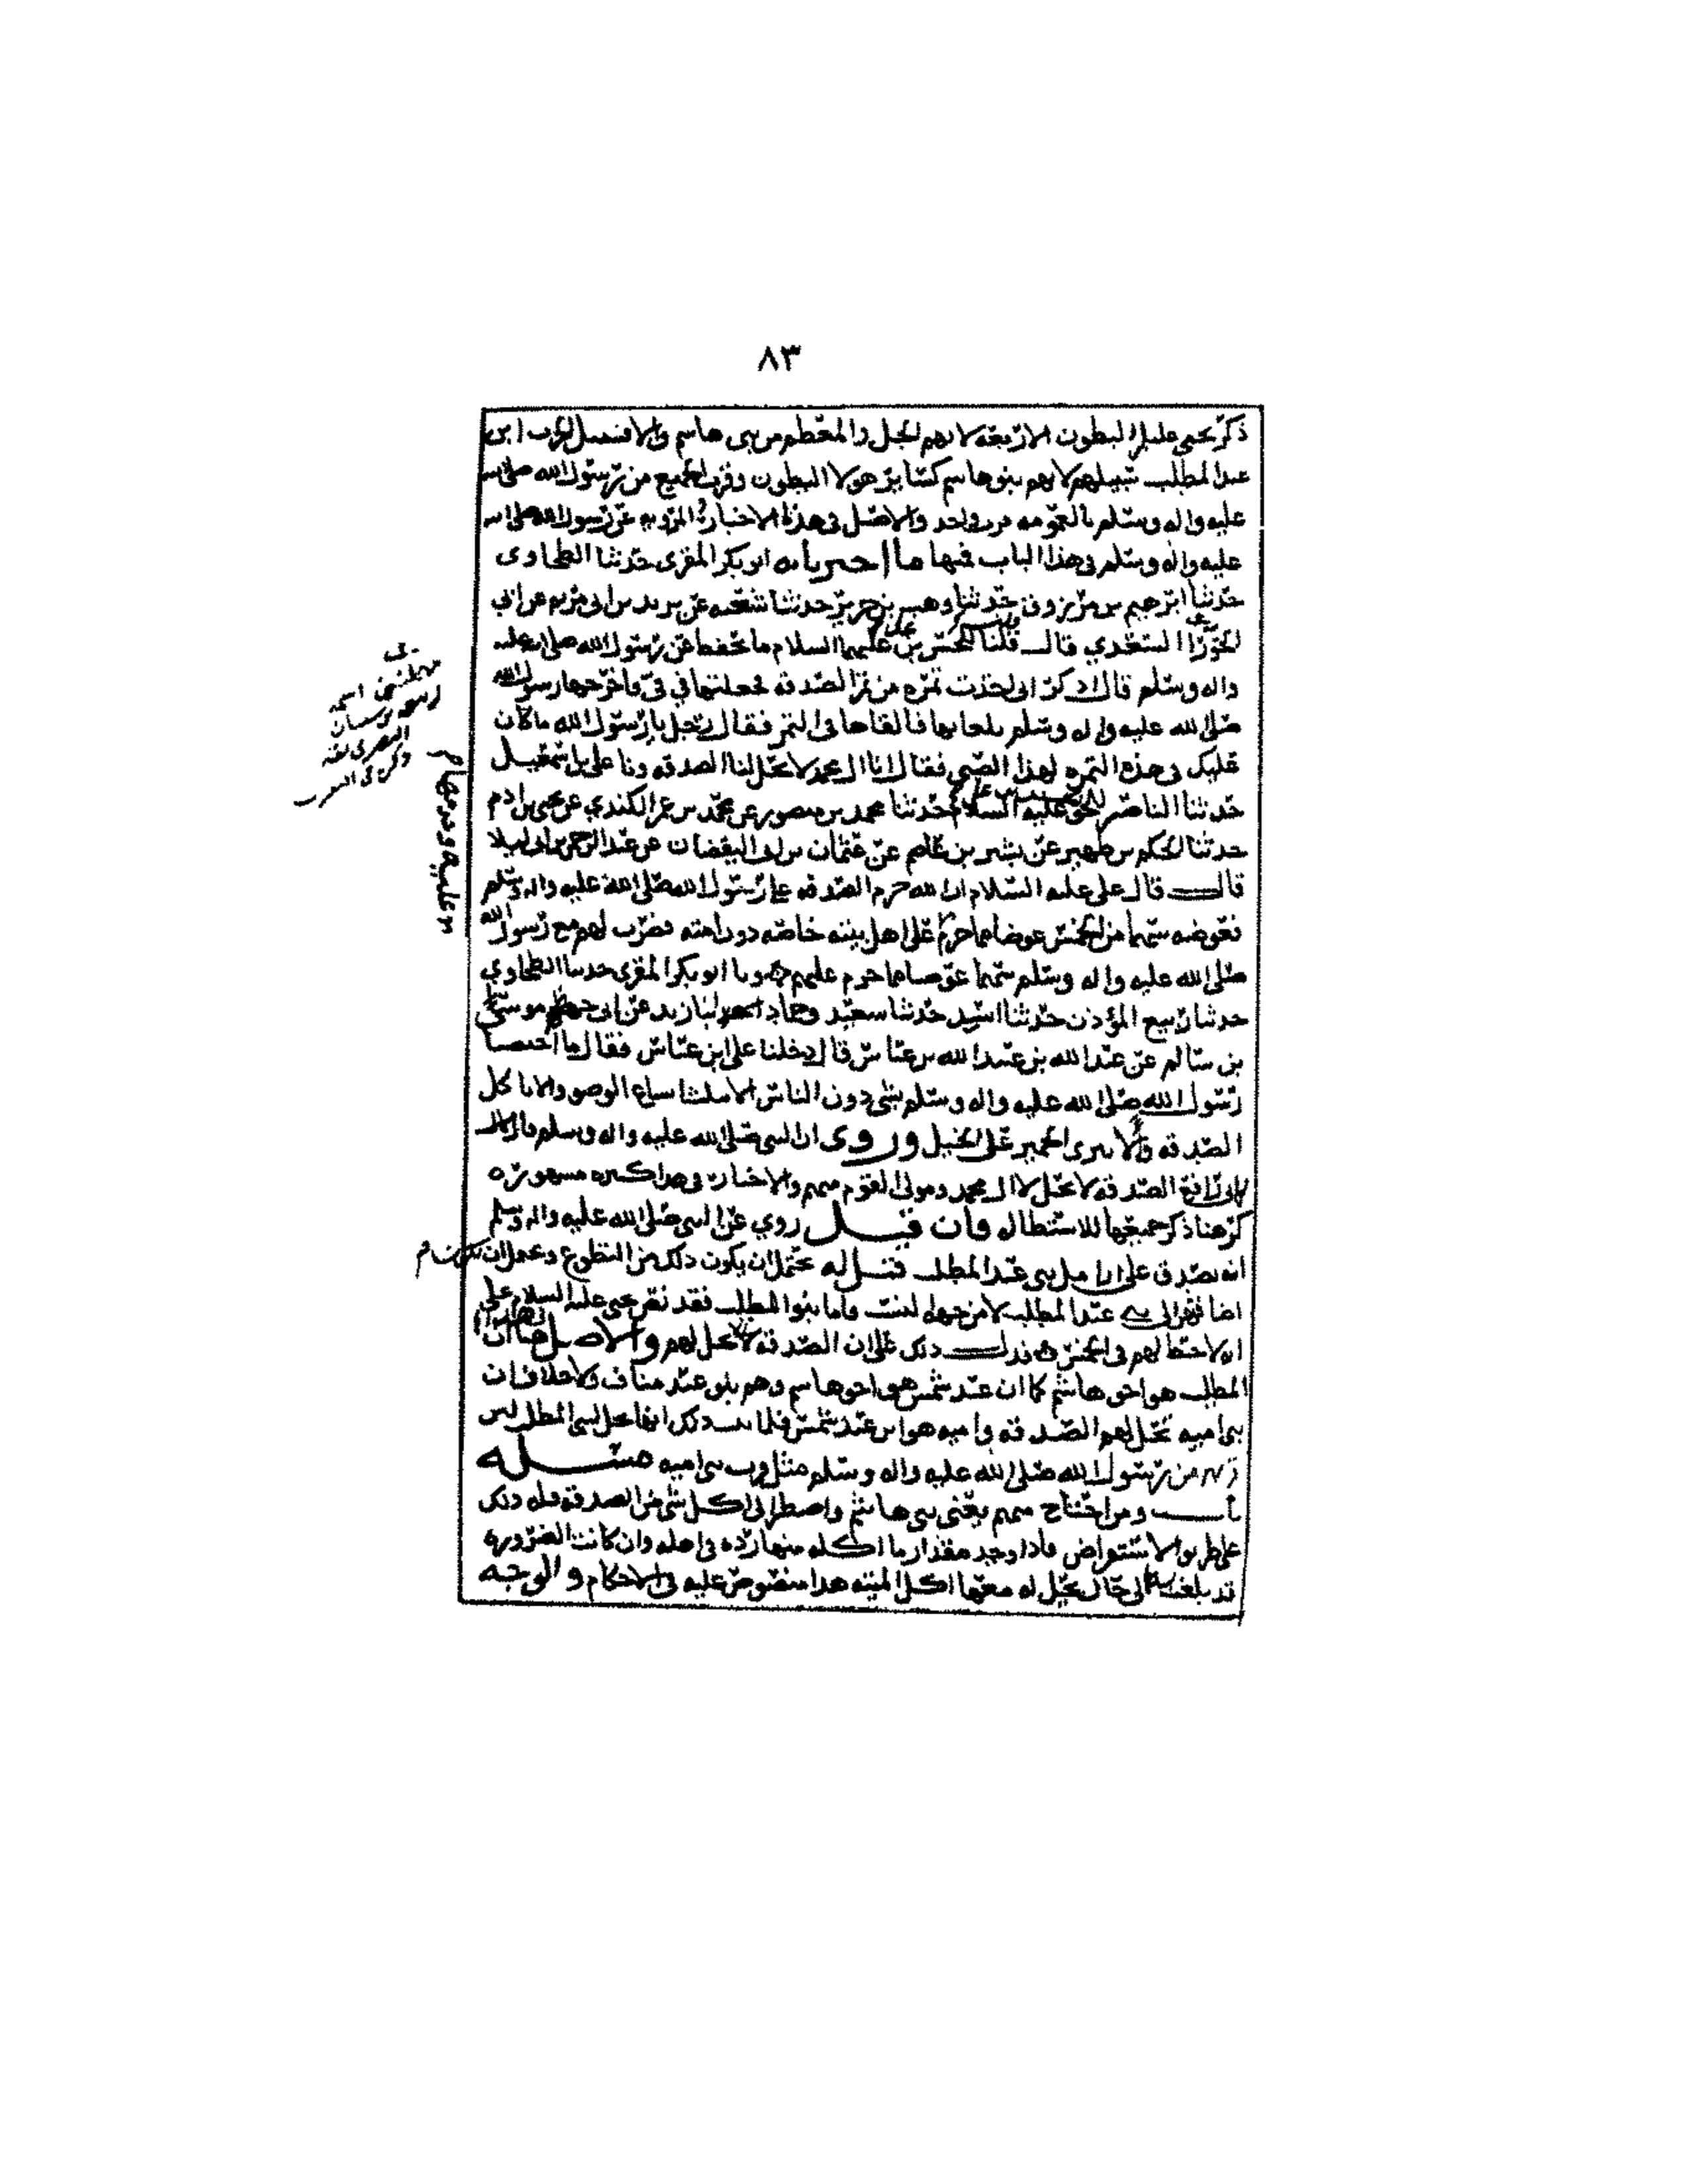 ٨٣
ذكر يحيى عليلم البطون الاربعة لانهم الجل والمعظم من بنى هاشم والا فنسل الحرث ابن
عبد المطلب سبيلهم لانهم بنو هاشم كسائر هولا البطون وقرب الجميع من رسول الله صلى الله
عليه واله وسلم بالعمومه قرب واحد والاصل فى هذا الاخبار المرويه عن رسول الله صلى الله
عليه واله وسلم فى هذا الباب فمنها ما اخبرنا به ابو بكر المقرى حدثنا الطحاوى
حدثنا ابرهيم بن مرزوق حدثنا وهب بن جرير حدثنا شعبه عن بريد بن ابى مريم عن ابى
الحورا السعدي قال قلنا للحسن بن علي عليهما السلام ما تحفظ عن رسول الله صلى الله عليه
واله وسلم قال اذكر انى اخذت تمره من تمر الصدقه فجعلتها في فيّ فاخرجها رسول الله
صلى الله عليه واله وسلم بلعابها فالقاها فى التمر فقال رجل يا رسول الله ما كان
عليك فى هذه التمره لهذا الصبي فقال انا ال محمد لا تحل لنا الصدقه ونا علي بن اسمعيل
حدثنا الناصر للحق عليه السلام حدثنا محمد بن منصور عن محمد بن عمر الكندي عن يحيى بن ادم
حدثنا الحكم بن ظهير عن بشر بن عاصم عن عثمان بن ابى اليقضان عن عبد الرحمن بن ابى ليلا
قال قال علي عليه السلام ان الله حرم الصدقه على رسول الله صلى الله عليه واله وسلم
فعوضه سهما من الخمس عوضا مما حرم على اهل بيته خاصه دون امته فضرب لهم مع رسول الله
صلى الله عليه واله وسلم سهما عوضا مما حرم عليهم ونا ابو بكر المقرى حدثنا الطحاوي
حدثنا ربيع المؤذن حدثنا اسد حدثنا سعيد وحماد ابنا زيد عن ابى جهضم موسى
بن سالم عن عبد الله بن عبيد الله بن عباس قال دخلنا على ابن عباس فقال ما اختصنا
رسول الله صلى الله عليه واله وسلم بشى دون الناس الا بثلث اسباغ الوضو والا ناكل
الصدقه والا ننزى الحمير على الخيل وروى ان النبى صلى الله عليه واله وسلم قال
لابى رافع الصدقه لا تحل لال محمد ومولى القوم منهم والاخبار فى هذا كثيره مشهوره
كرهنا ذكر جميعها للاستطاله فان قيل روي عن النبى صلى الله عليه واله وسلم
انه تصدق على ارامل بنى عبد المطلب قيل له يحتمل ان يكون ذلك من التطوع ويحتمل ان تكون
اضافتهن الى بنى عبد المطلب لا من جهه النسب واما بنوا المطلب فقد نص يحيى عليه السلام على
انه لا حظ لهم فى الخمس فدل ذلك على ان الصدقه تحل لهم والاصل فى هذا ان
المطلب هو اخو هاشم كما ان عبد شمس هو اخو هاشم وهم بنو عبد مناف ولا خلاف ان
بنى اميه تحل لهم الصدقه واميه هو ابن عبد شمس فلما ثبت ذلك انها تحل لبنى المطلب لان
قربهم من رسول الله صلى الله عليه واله وسلم مثل قرب بنى اميه مسئله
قال ومن احتاج منهم يعنى بنى هاشم واضطر الى اكل شى من الصدقه فله ذلك
على طريق الاستقراض فاذا وجد مقدار ما اكله منها رده فى اهله وان كانت الضروره
قد بلغت به الى حال تحل له معها اكل الميته هذا منصوص عليه فى الاحكام والوجه
اسمه
ربيعه بن شيبان
البصرى ثقه